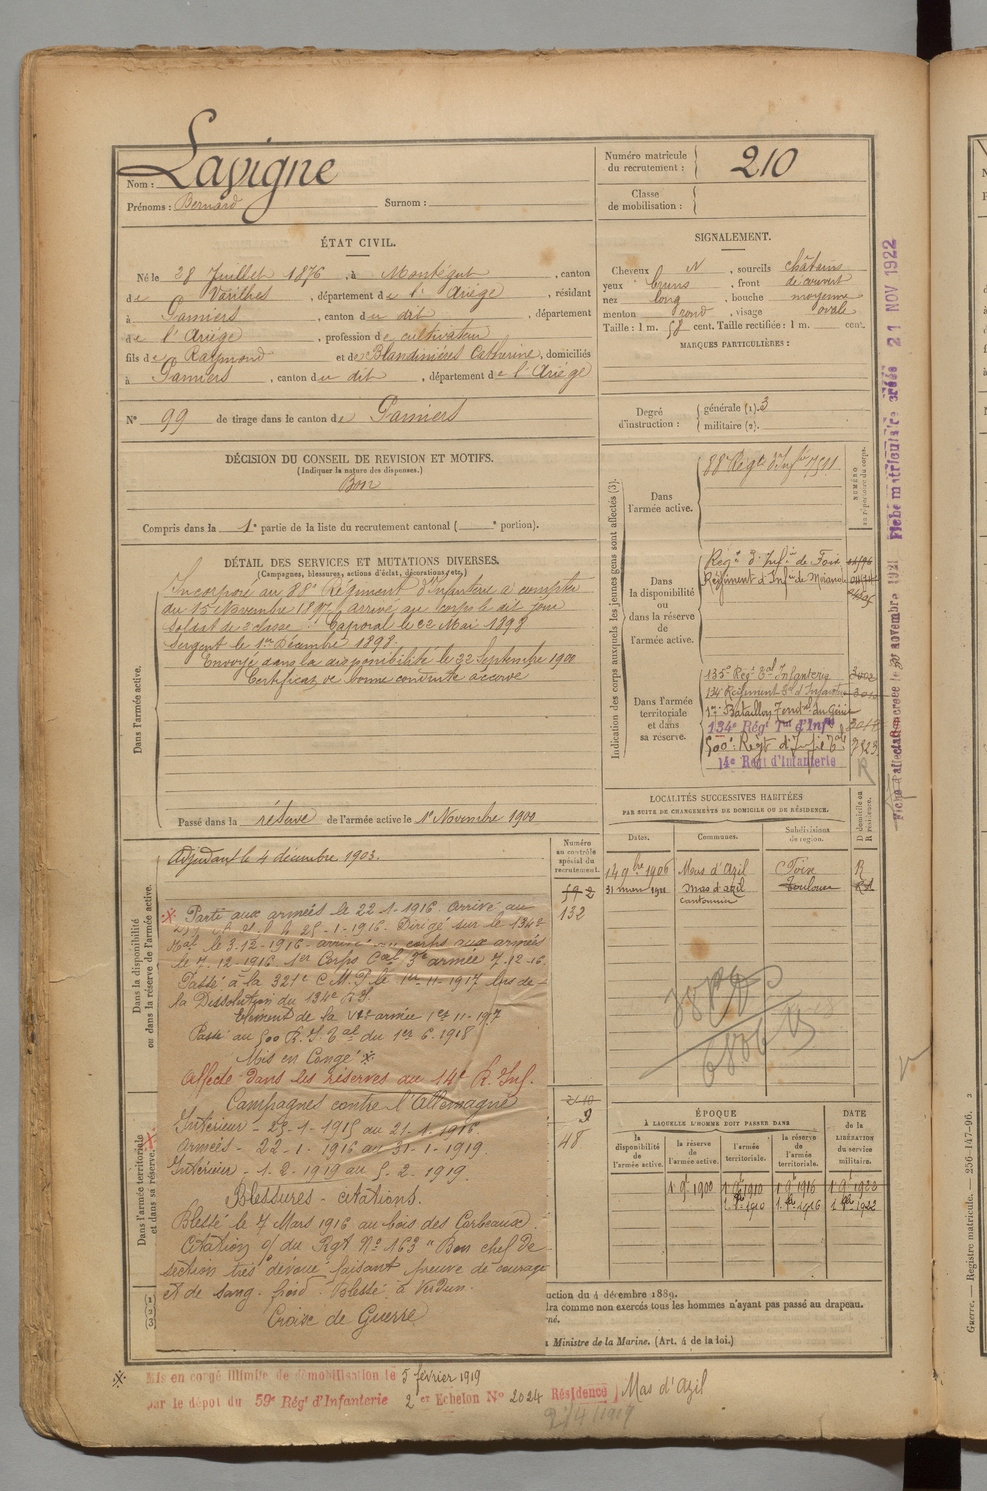 Nom : Lavigne
Prénoms : Bernard Surnom :
Numéro matricule du recrutement : 210
Classe de mobilisation :
ÉTAT CIVIL.
Né le 28 Juillet 1876, à Montégut, canton
de Varilhes, département de l'Ariège, résidant
à Pamiers, canton du dit, département
de l'Ariège, profession de cultivateur
fils de Raymond et de Blandinières Catherine, domiciliés
à Pamiers, canton du dit, département de l'Ariège
N° 99 de tirage dans le canton de Pamiers
SIGNALEMENT.
Cheveux N, sourcils châtains
yeux bruns, front découvert
nez long, bouche moyenne
menton rond, visage ovale
Taille : 1 m. 58 cent. Taille rectifiée : 1 m. cent.
MARQUES PARTICULIÈRES :
Degré d'instruction : générale (1). 3
militaire (2).
DÉCISION DU CONSEIL DE REVISION ET MOTIFS.
(Indiquer la nature des dispenses.)
Bon
Compris dans la 1e partie de la liste du recrutement cantonal ( e portion).
DÉTAIL DES SERVICES ET MUTATIONS DIVERSES.
(Campagnes, blessures, actions d'éclat, décorations, etc.)
Dans l'armée active.
Incorporé au 88e Régiment d'Infanterie à compter
du 15 Novembre 1897, arrivé au corps le dit jour
soldat de 2e classe. Caporal le 22 Mai 1898
Sergent le 1er Décembre 1898.
Envoyé dans la disponibilité le 22 Septembre 1900
Certificat de bonne conduite accordé
Passé dans la réserve de l'armée active le 1er Novembre 1900
Dans la disponibilité ou dans la réserve de l'armée active.
Adjudant le 4 décembre 1903.
Parti aux armées le 22-1-1916. Arrivé au
le 25-1-1916. Dirigé sur le 134e
tal le 3-12-1916. arrivé au corps aux armées
le 7.12.1916 1er Corps Cal 3e armée 7-12-16.
Passé à la 321e C.M.P. le 1er 11-1917 lors de
la Dissolution du 134e R.I.
Elément de la armée 1er 11-1917
Passé au 500 R.I. Tal du 1er 6.1918
Mis en Congé
Affecté dans les réserves au 14e R. Inf.
Campagnes contre l'Allemagne
Intérieur - au 21-1-1916.
Armées - 22-1-1916 au 31-1-1919.
Intérieur - 1.2.1919 au 5-2.1919.
Blessures - citations.
Blessé le 7 Mars 1916 au bois des Corbeaux.
Citation o/ du Rgt N° 163 "Bon chef de
section très dévoué faisant preuve de courage
et de sang-froid. Blessé à Verdun.
Croix de Guerre
Dans l'armée territoriale et dans sa réserve.
Indication des corps auxquels les jeunes gens sont affectés (3).
NUMÉRO au répertoire du corps.
Dans l'armée active.
88e Régt d'Infie 7511
Dans la disponibilité ou dans la réserve de l'armée active.
Régt d'Infie de Foix
Régiment d'Infie de Mirande
Dans l'armée territoriale et dans sa réserve.
135e Rég Tal Infanterie
134e Régiment Tal d'Infanterie
1er Bataillon Territal du Génie
134e Régt Tal d'Infie
500e Régt d'Infie Tale 7823
14e Régt d'Infanterie
R
Numéro au contrôle spécial du recrutement.
592
132
9
48
LOCALITÉS SUCCESSIVES HABITÉES
PAR SUITE DE CHANGEMENTS DE DOMICILE OU DE RÉSIDENCE.
Dates. Communes. Subdivisions de région. D domicile ou R résidence.
14 9bre 1906 Mas d'Azil Foix R
31 mars 1921 Mas d'azil Toulouse
cantonnier
ÉPOQUE
À LAQUELLE L'HOMME DOIT PASSER DANS
la disponibilité de l'armée active. la réserve de l'armée active. l'armée territoriale. la réserve de l'armée territoriale.
DATE de la LIBÉRATION du service militaire.
1. 9b 1900 1. 9b 1910 1. 9b 1916 1. 9b 1922
1. 8bre 1910 1. 8bre 1916 1. 8bre 1922
uction du 4 décembre 1889.
dra comme non exercés tous les hommes n'ayant pas passé au drapeau.
né.
Ministre de la Marine. (Art. 4 de la loi.)
Mis en congé illimité de démobilisation le 5 février 1919
par le dépôt du 59e Régt d'Infanterie 2e Echelon N° 2024 Résidence Mas d'Azil
Fiche matriculaire créée 21 NOV 1922
Guerre. — Registre matricule. — 256-147-96.